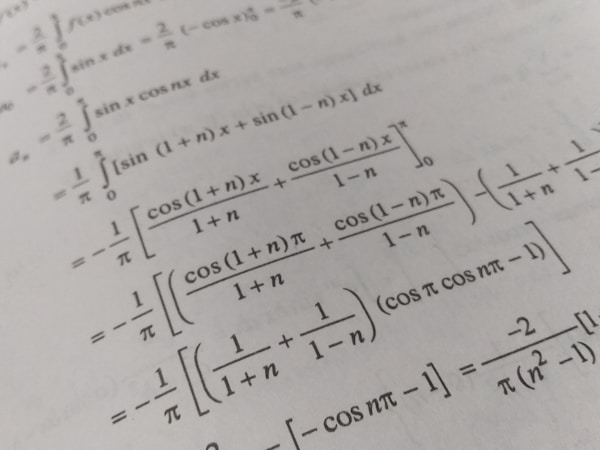 = 2/π ∫₀ f(x) cos nx
= 2/π ∫₀ sin x dx = 2/π (−cos x)₀^π =
aₙ = 2/π ∫₀^π sin x cos nx dx
= 1/π ∫₀^π [sin (1 + n) x + sin (1 − n) x] dx
= − 1/π [ cos (1 + n) x / 1 + n + cos (1 − n) x / 1 − n ]₀^π
= − 1/π [ ( cos (1 + n) π / 1 + n + cos (1 − n) π / 1 − n ) − ( 1 / 1 + n + 1 / 1 −
= − 1/π [ ( 1 / 1 + n + 1 / 1 − n ) (cos π cos nπ − 1) ]
[− cos nπ − 1] = −2 / π (n² − 1) [1